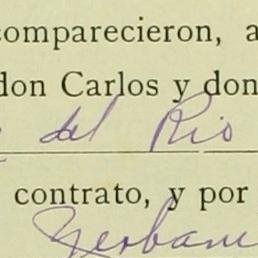 comparecieron, a
don Carlos y don
del Rio
contrato, y por